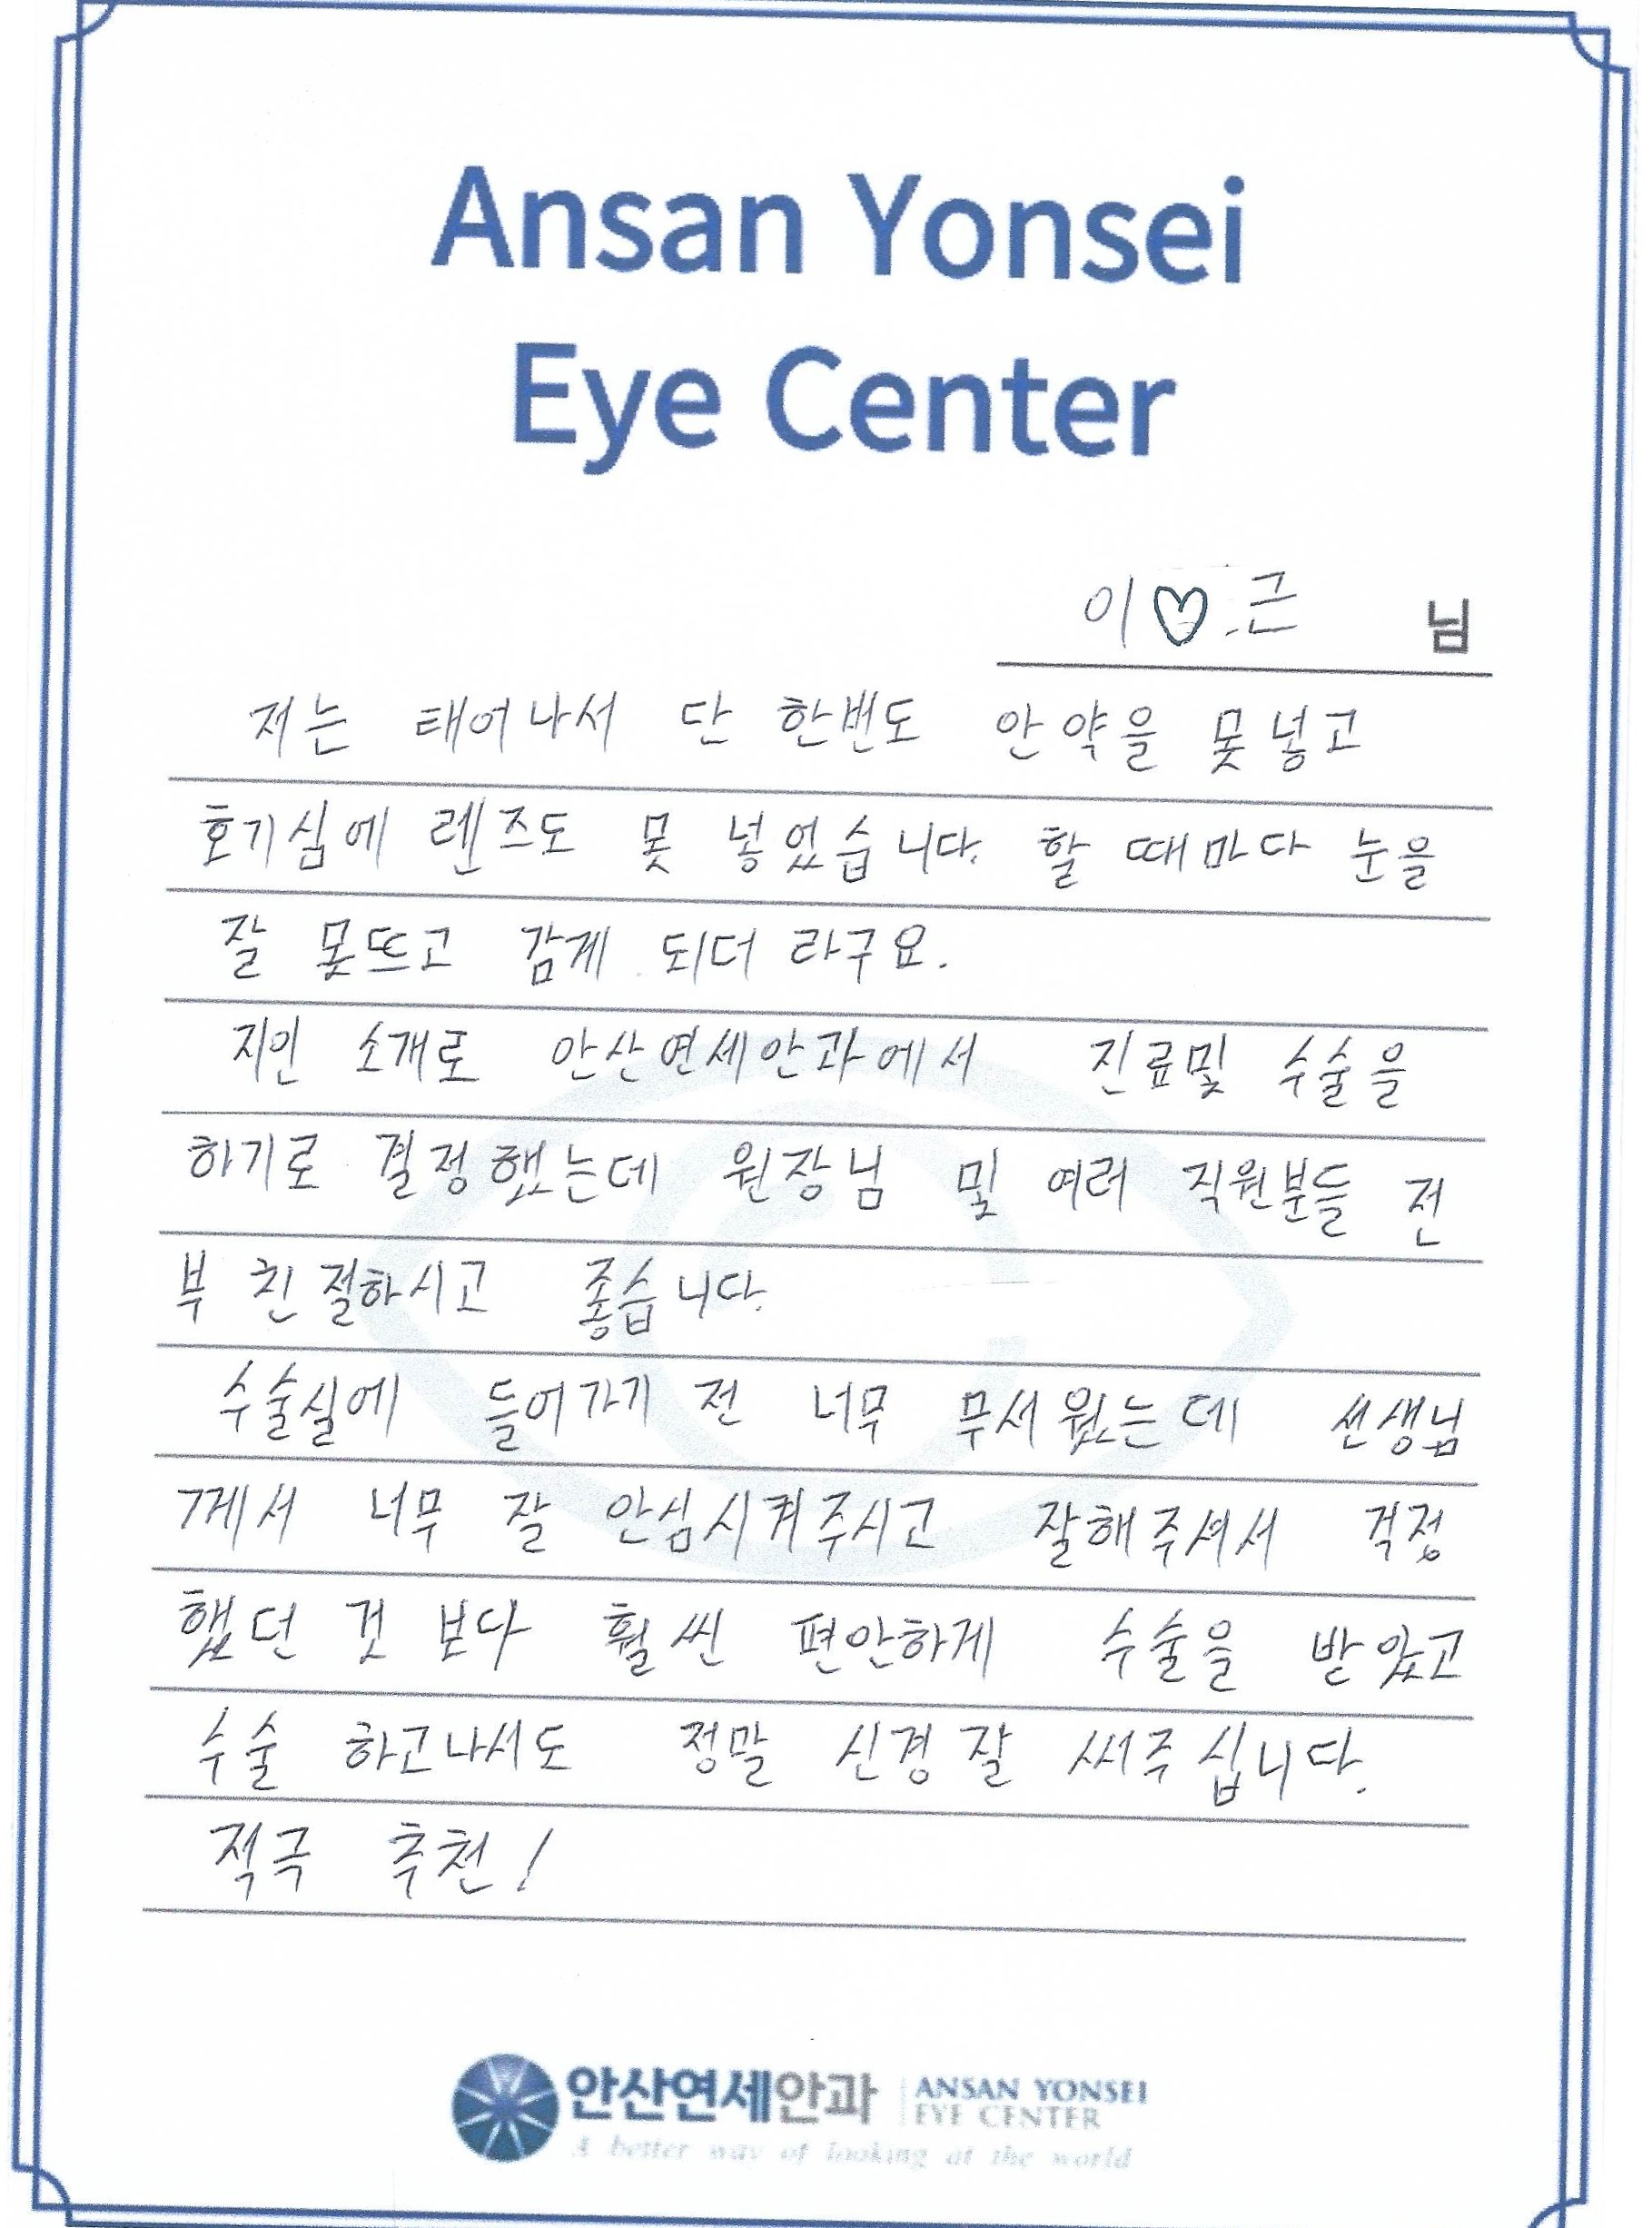 Ansan Yonsei
Eye Center
이♡근 님
저는 태어나서 단 한번도 안약을 못넣고
호기심에 렌즈도 못 넣었습니다. 할 때마다 눈을
잘 못뜨고 감게 되더라구요.
지인 소개로 안산연세안과에서 진료및 수술을
하기로 결정했는데 원장님 및 여러 직원분들 전
부 친절하시고 좋습니다.
수술실에 들어가기 전 너무 무서웠는데 선생님
께서 너무 잘 안심시켜주시고 잘해주셔서 걱정
했던 것 보다 훨씬 편안하게 수술을 받았고
수술 하고나서도 정말 신경 잘 써주십니다.
적극 추천!
안산연세안과 ANSAN YONSEI
EYE CENTER
A better way of looking at the world